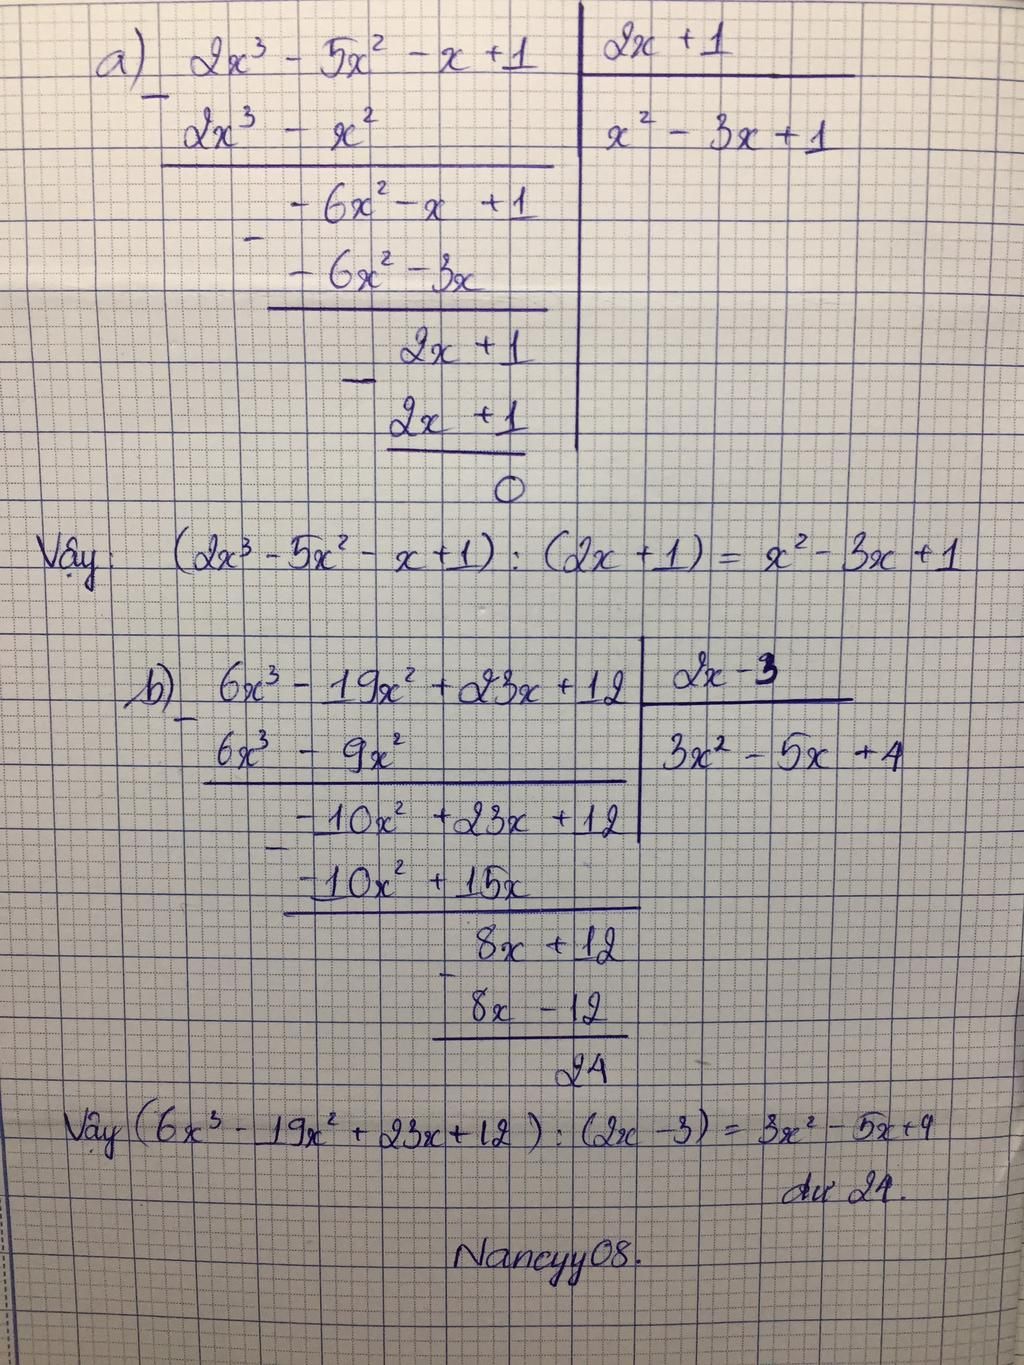 a) 2x³ - 5x² - x + 1 | 2x + 1
- 2x³ - x² | x² - 3x + 1
- 6x² - x + 1
- - 6x² - 3x
2x + 1
- 2x + 1
0
Vậy: (2x³ - 5x² - x + 1) : (2x + 1) = x² - 3x + 1
b) 6x³ - 19x² + 23x + 12 | 2x - 3
- 6x³ - 9x² | 3x² - 5x + 4
- 10x² + 23x + 12
- - 10x² + 15x
8x + 12
- 8x - 12
24
Vậy (6x³ - 19x² + 23x + 12) : (2x - 3) = 3x² - 5x + 4
dư 24.
Nancyy08.